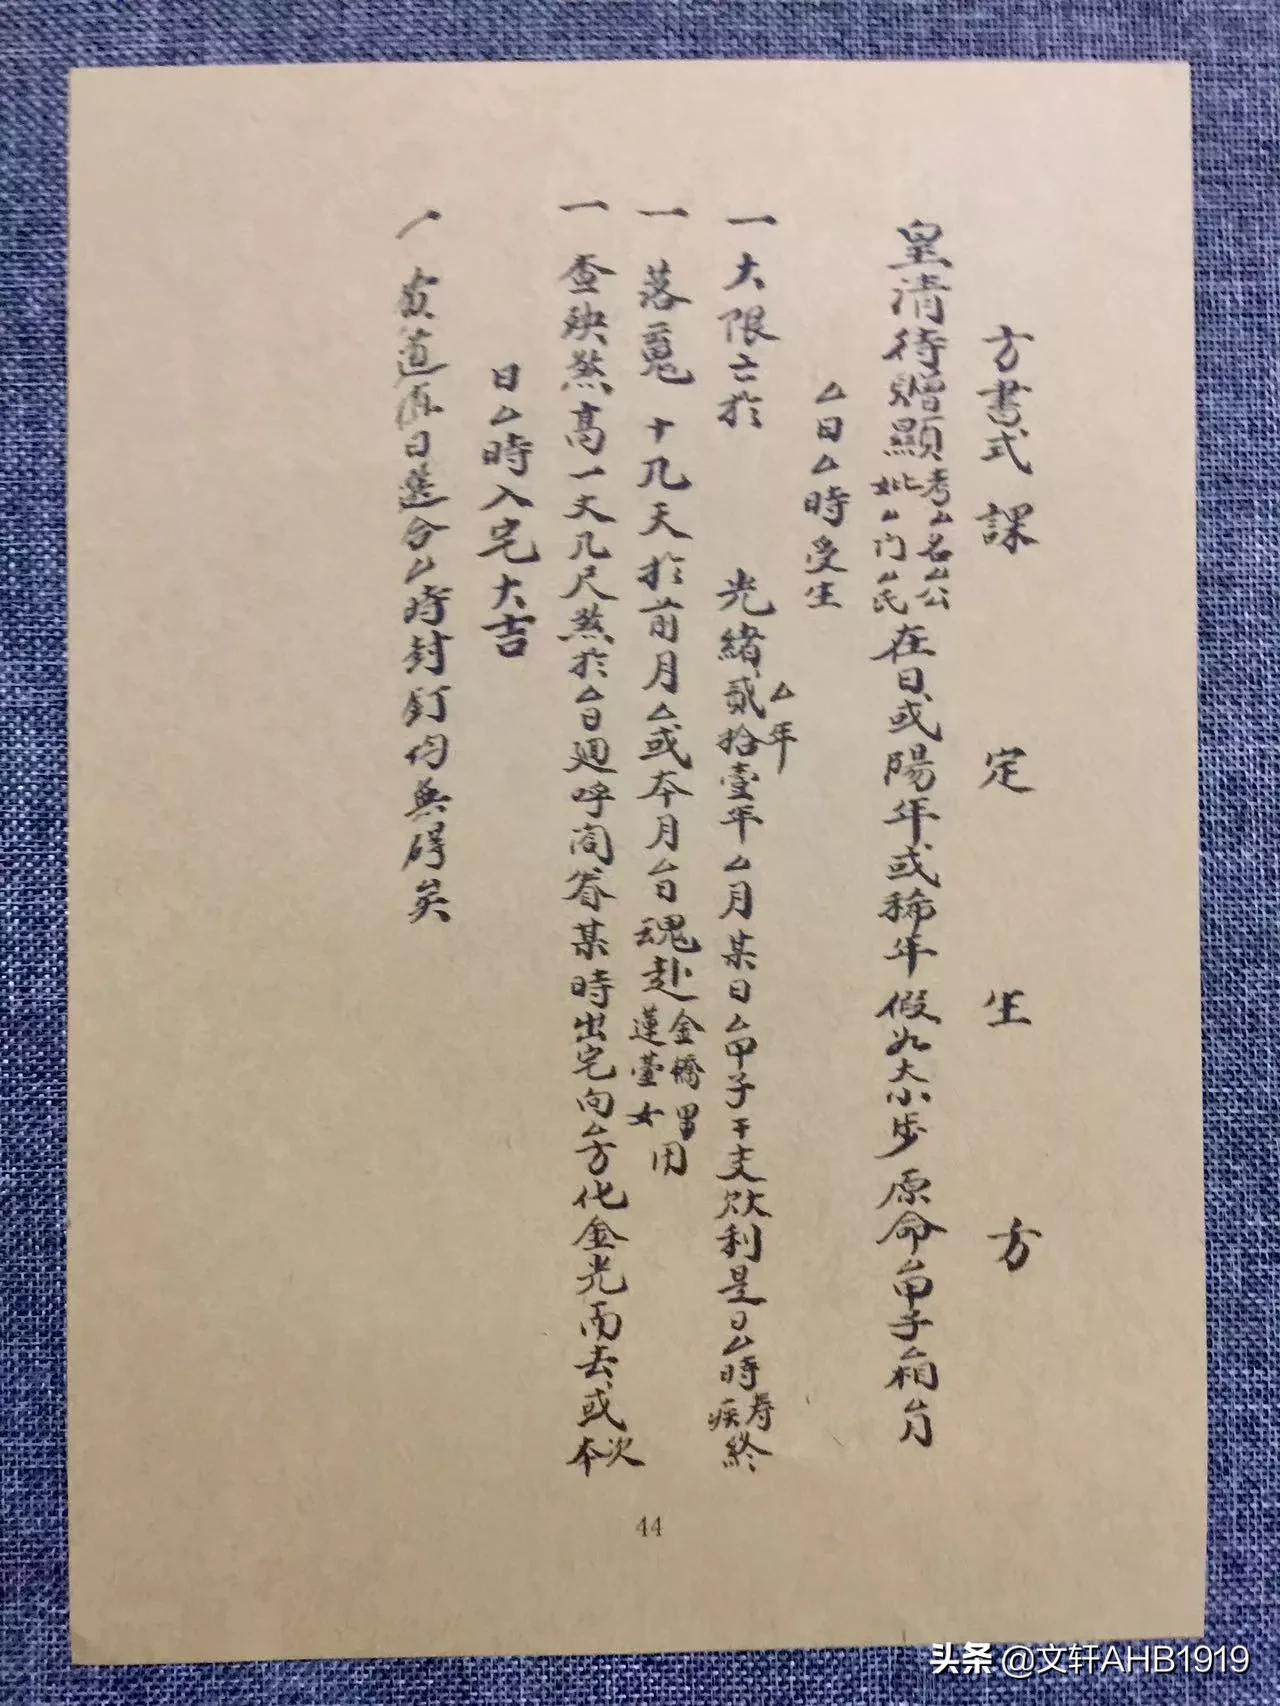 方書式 課 定 生 方
皇清待贈顯考厶名公妣厶门厶氏在日或陽年或稀年假如大小步原命厶甲子相厶月
厶日厶時受生
厶年
一大限亡於 光緒貳拾壹年厶月某日厶甲子干支欤利是日厶時寿疾終
一 落 十几天於前月厶或本月厶日魂赴金橋男蓮臺女用
一 查殃煞高一丈几尺煞於厶日迴呼閤眷某時出宅向厶方化金光而去或本次
日厶時入宅大吉
一 日 厶時封釘均無碍矣
44
头条 @文轩AHB1919